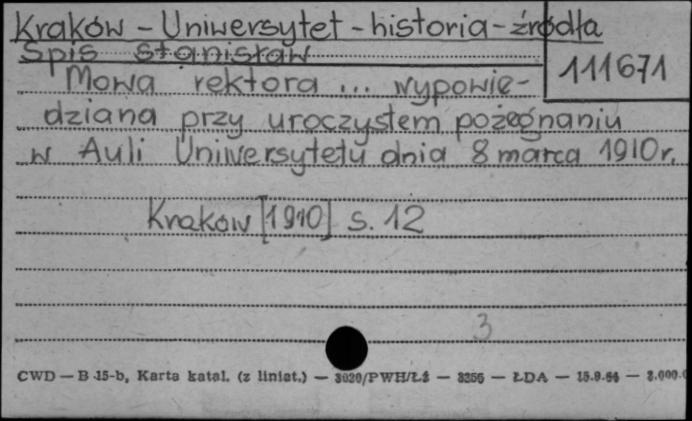 Kraków - Uniwersytet - historia - źródła
Spis Stanisław
111671
Mowa rektora ... wypowie-
dziana przy uroczystem pożegnaniu
w Auli Uniwersytetu dnia 8 marca 1910 r.
Kraków [1910] s. 12
3
CWD — B 15-b, Karta katal. (z liniat.) — 3020/PWH/Łż — 3356 — ŁDA — 15.9.56 —